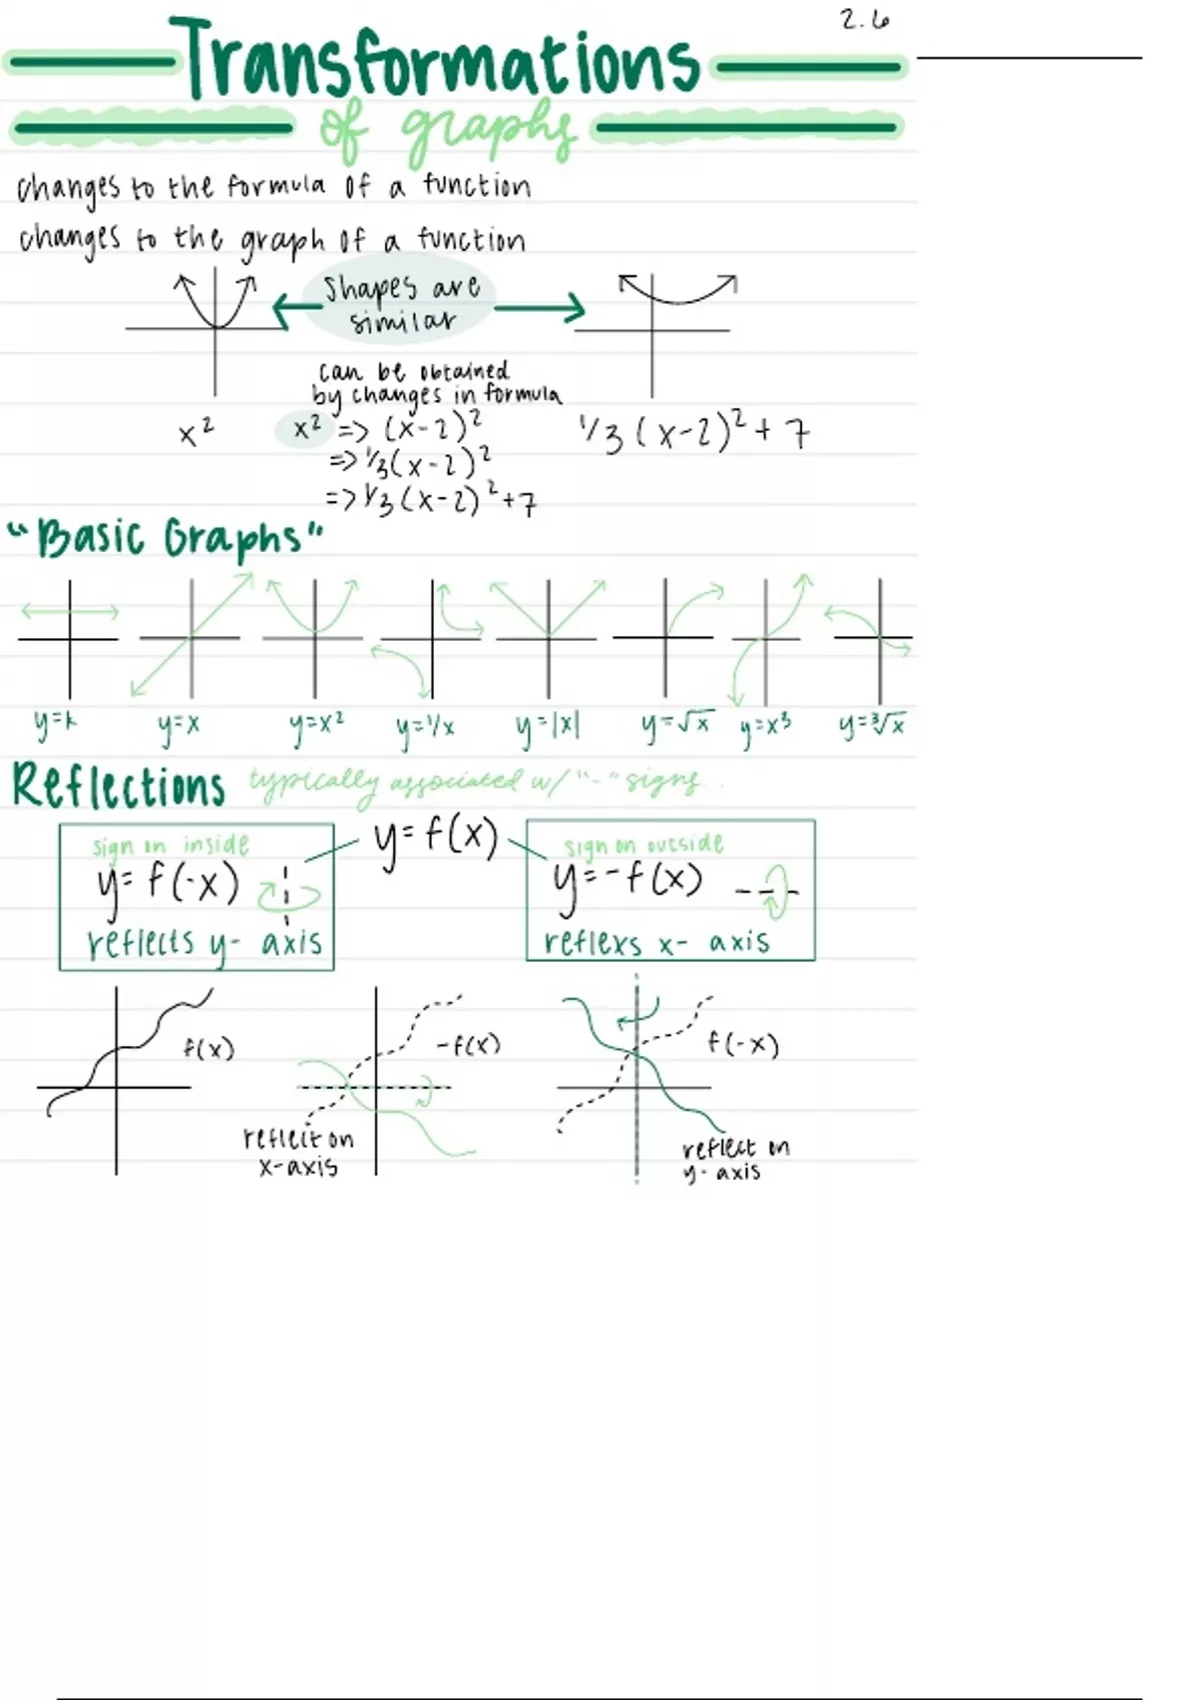 2.6
Transformations
of graphs
changes to the formula of a function
changes to the graph of a function
shapes are
similar
can be obtained
by changes in formula
x² x² => (x-2)² 1/3(x-2)²+7
=> 1/3(x-2)²
=> 1/3(x-2)²+7
"Basic Graphs"
y=k y=x y=x² y=1/x y=|x| y=√x y=x³ y=³√x
Reflections typically associated w/ "-" signs...
y=f(x)
sign on inside
y=f(-x)
reflects y- axis
sign on outside
y=-f(x)
reflexs x- axis
f(x) -f(x) f(-x)
reflect on
x-axis
reflect on
y-axis